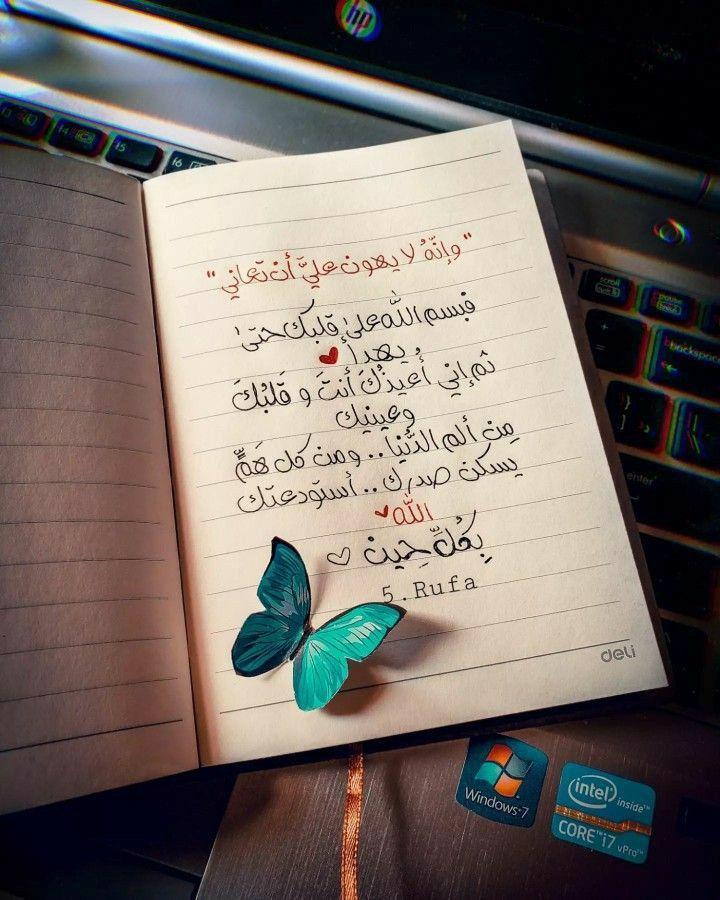 hp
f3
f4
f5
f6
"وإنّهُ لا يهون عليَّ أن تعاني"
فبسم الله علىٰ قلبك حتىٰ
يهدا
ثم إني أُعيذُكَ أنتَ و قَلبُكَ
وعينيك
مِن ألم الدُّنيا.. ومن كل هَمٍّ
يسكن صدرك.. أستودعتك
الله
بِكُلِّ حِينٍ
5.Rufa
deli
scroll
pause
backspace
enter
Windows 7
intel inside™
CORE™i7
vPro™